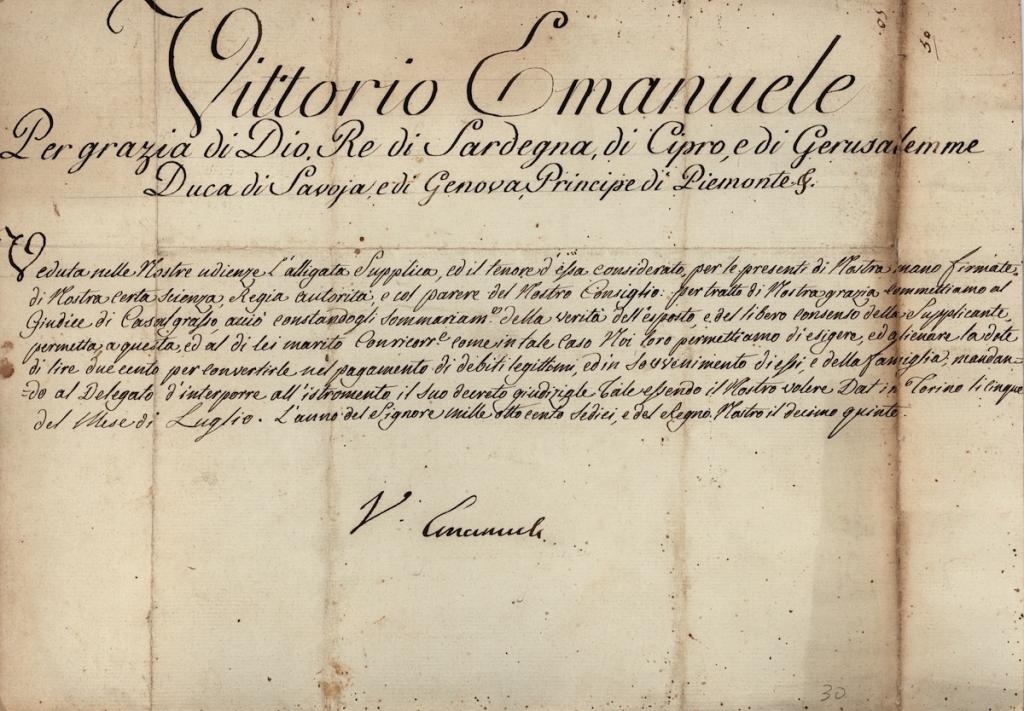 50.
50
Vittorio Emanuele
Per grazia di Dio, Re di Sardegna, di Cipro, e di Gerusalemme
Duca di Savoja, e di Genova, Principe di Piemonte &.
Veduta nelle Nostre udienze l'alligata Supplica, ed il tenore d'essa considerato, per le presenti di Nostra mano firmate,
di Nostra certa scienza, Regia autorità, e col parere del Nostro Consiglio: per tratto di Nostra grazia commettiamo al
Giudice di Casalgrasso, acciò constandogli sommariam.te della verità dell'esposto, e del libero consenso della Supplicante,
permetta, a questa, ed al di lei marito Conricorr.e come in tale caso Noi loro permettiamo di esigere, ed alienare la dote
di lire due cento per convertirle nel pagamento di debiti legittimi, ed in sovvenimento di essi, e della famiglia, mandan=
=do al Delegato d'interporre all'istromento il suo decreto giudiziale. Tale essendo il Nostro volere. Dat. in Torino li cinque
del Mese di Luglio. L'anno del Signore mille otto cento sedici, e del Regno Nostro il decimo quinto.
V. Emanuele
30